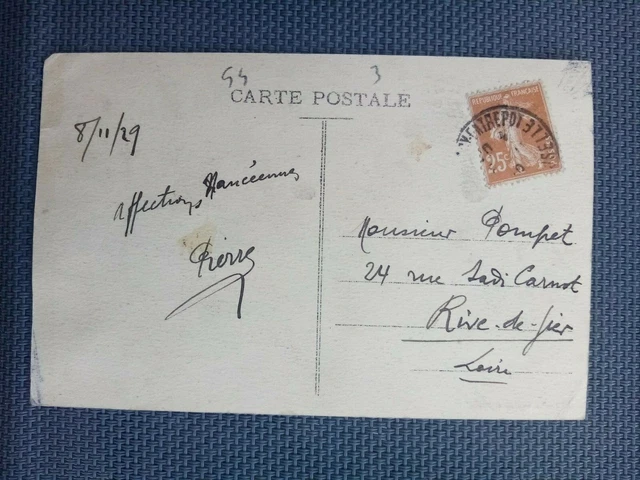 3
CARTE POSTALE
REPUBLIQUE FRANÇAISE
25c
8/11/29
Affections Nancéennes
Pierre
Monsieur Pompet
24 rue Sadi Carnot
Rive-de-Gier
Loire